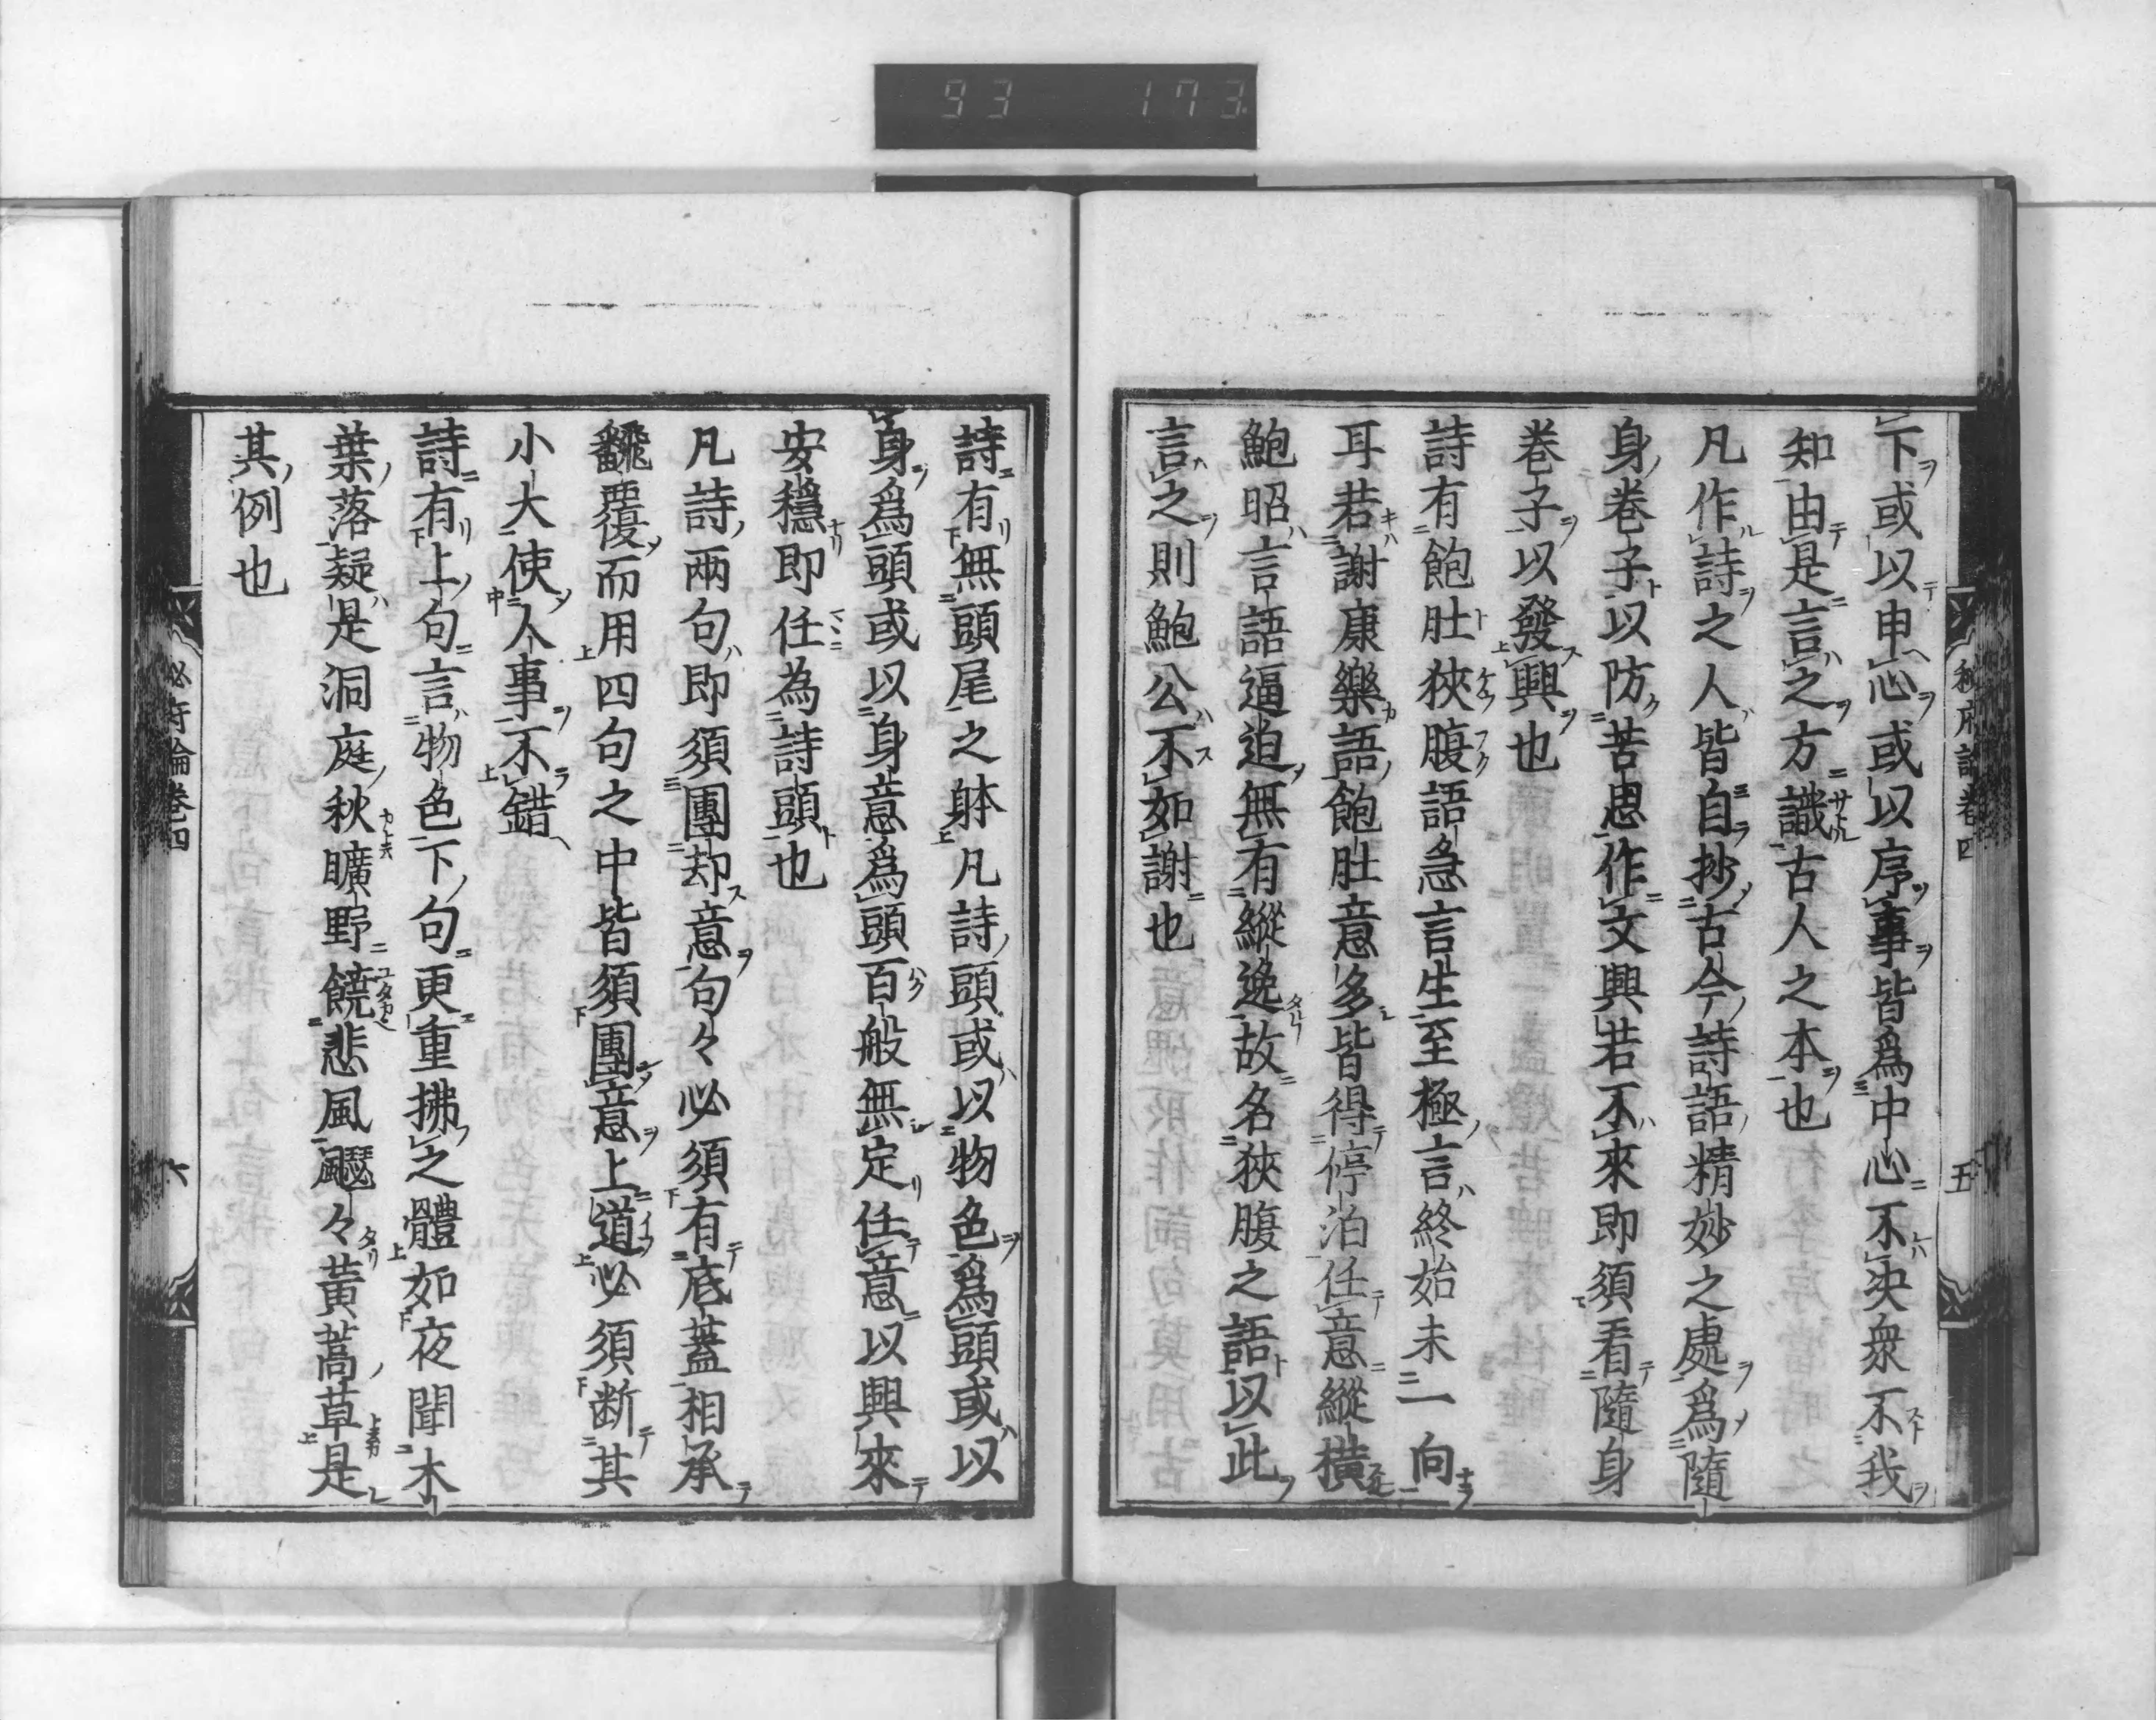 93 173
秘府論卷四 五
下或以申心或以序事皆爲中心不决衆不我
知由是言之方識古人之本也
凡作詩之人皆自抄古今詩語精妙之處爲隨
身卷子以防苦思作文興若不來即須看隨身
卷子以發興也
詩有飽肚狹腹語急言生至極言終始未一向
耳若謝康樂語飽肚意多皆得停泊任意縱橫
鮑昭言語逼迫無有縱逸故名狹腹之語以此
言之則鮑公不如謝也
詩有無頭尾之躰凡詩頭或以物色爲頭或以
身爲頭或以身意爲頭百般無定任意以興來
安穩即任為詩頭也
凡詩兩句即須團却意句々必須有底蓋相承
飜覆而用四句之中皆須團意上道必須断其
小大使人事不錯
詩有上句言物色下句更重拂之體如夜聞木
葉落疑是洞庭秋曠野饒悲風颼々黃蒿草是
其例也
秘府論卷四 六